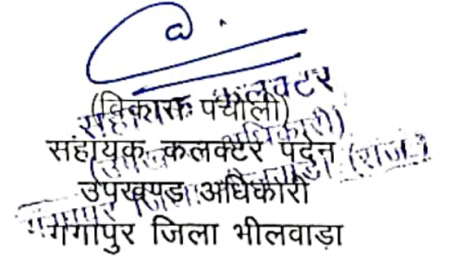 (विकास पंचोली)
सहायक कलक्टर पदेन
उपखण्ड अधिकारी
गंगापुर जिला भीलवाड़ा
सहायक कलक्टर
(उपखण्ड अधिकारी)
गंगापुर जिला भीलवाड़ा (राज.)